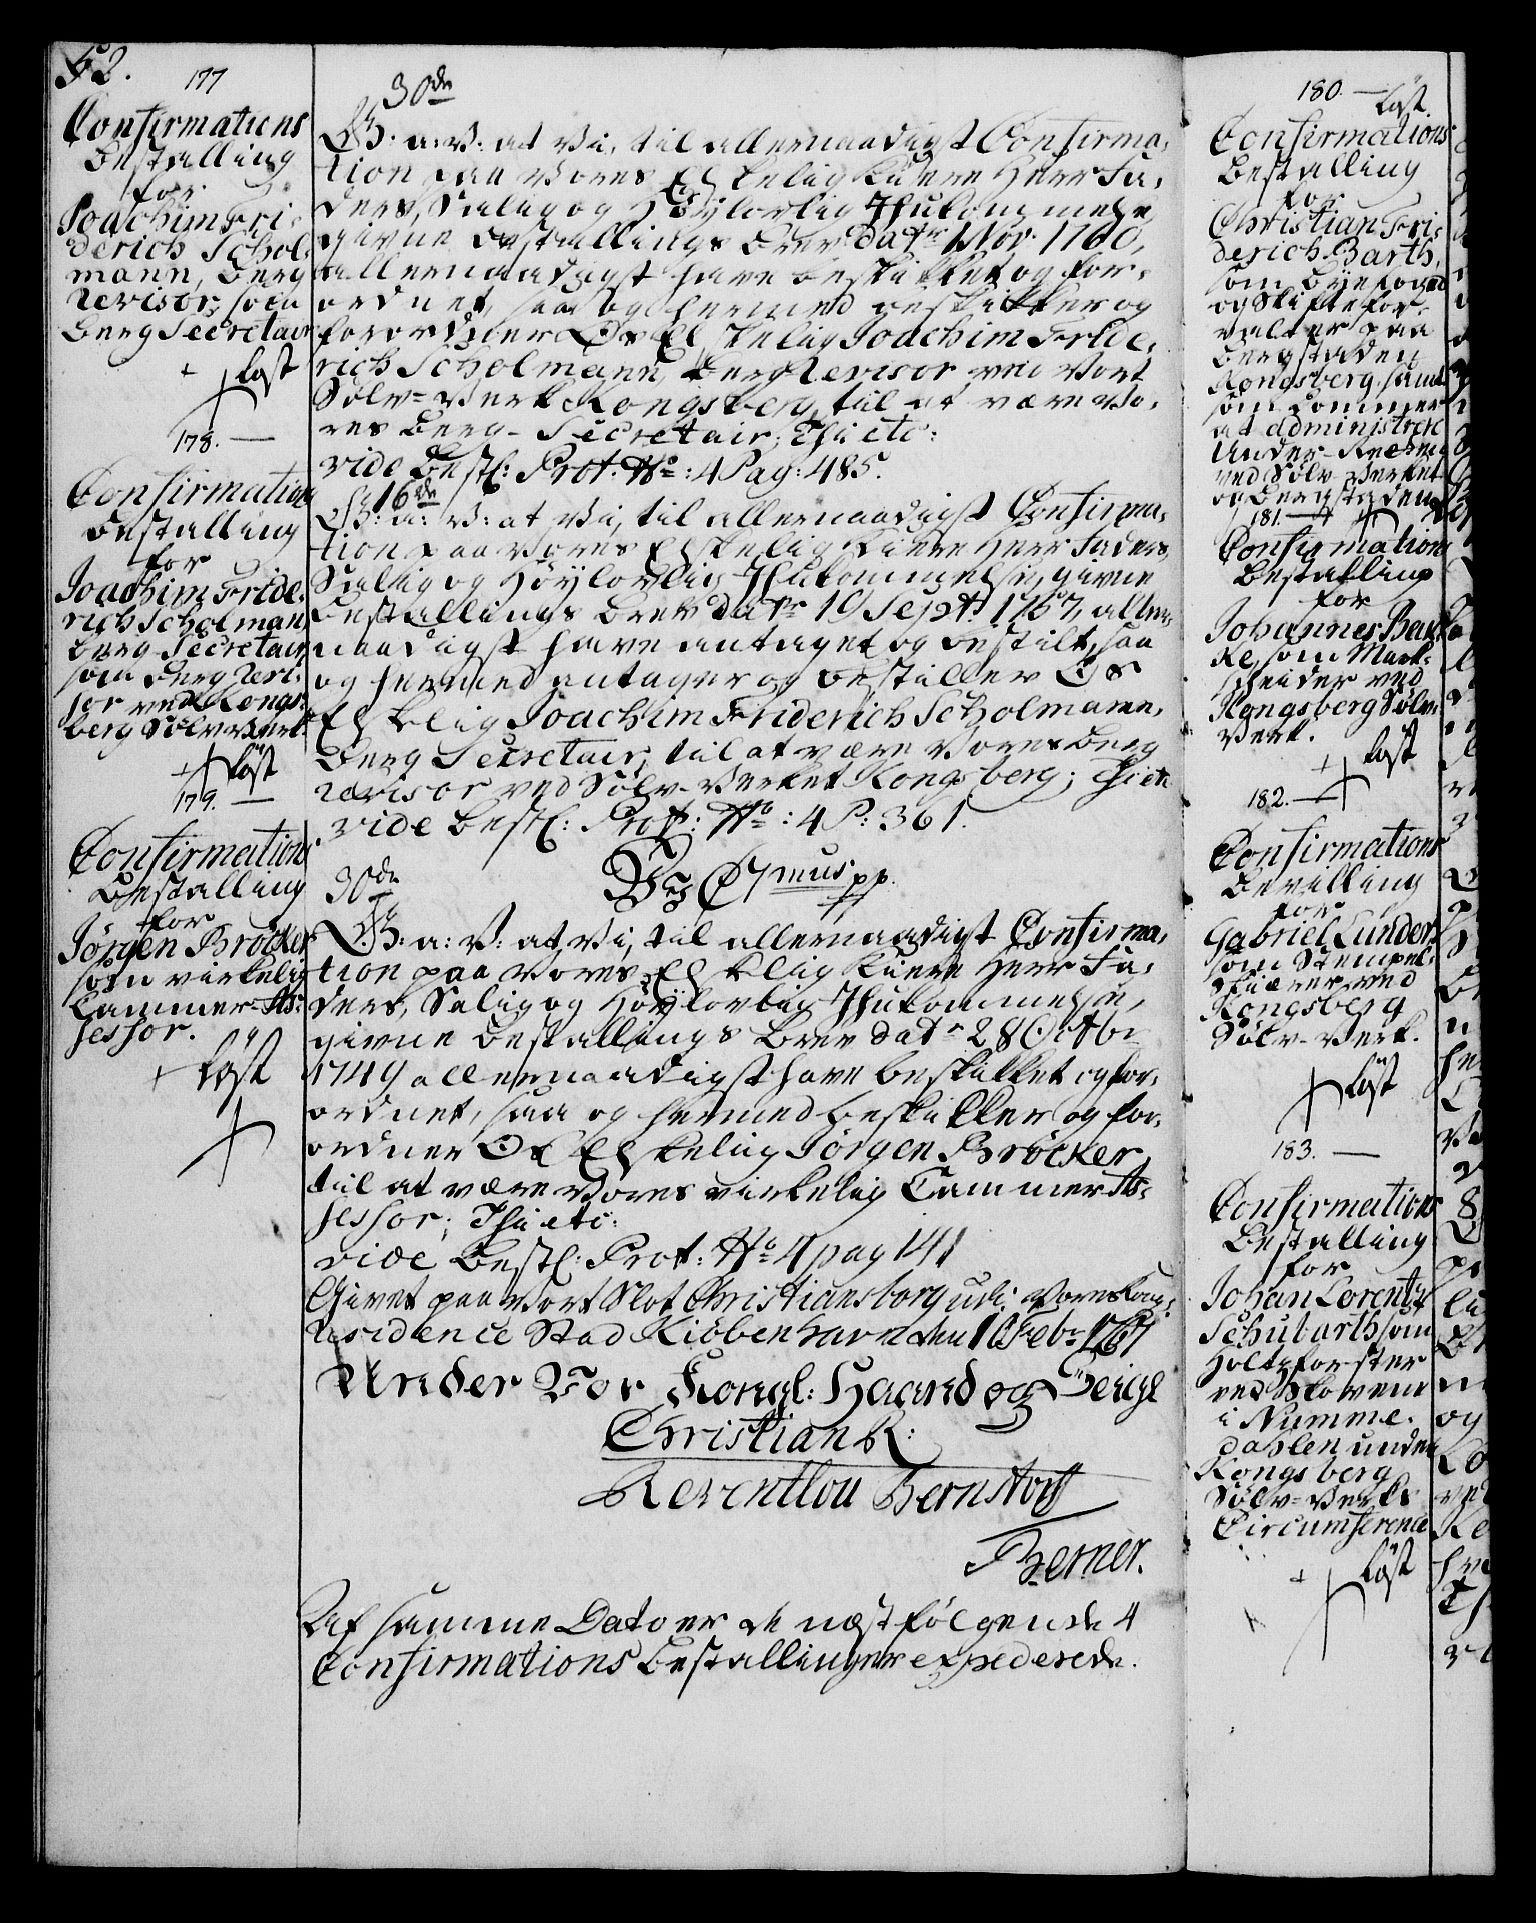 52.
177
Confirmations
Bestalling
for
Joachim Fri-
derich Schol-
mann, Berg
Revisor, som
Berg Secretair
+ löst
178. —
Confirmations
Bestalling
for
Joachim Fride-
rich Scholman
Berg-Secretair
som Berg Revi-
sor ved Kongs-
berg Sølv-Verk.
+ löst
179. —
Confirmations
Bestalling
for
Jörgen Bröcker
som virkelig
Cammer-As-
sessor.
+ löst
30de
G: a: V: at Vi, til allernaadigst Confirma-
tion paa Vores Elskelig Kiere Herr Fa-
ders, Salig og Höylovlig Ihukommelse
givne Bestallings Brev datr 1 Nov. 1760,
allernaadigst have beskikket og for-
ordnet, saa og hermed beskikker og
forordner Os Elskelig Joachim Fride-
rich Scholmann, Berg Revisor ved Vort
Sølv-Verk Kongsberg, til at være Vo-
res Berg-Secretair; Thi etc:
vide Bestl: Prot. No: 4 Pag: 485.
16de
G: a: V: at Vi, til allernaadigst Confirma-
tion paa Vores Elskelig Kiere Herr Faders,
Salig og Höylovlig Ihukommelse, givne
Bestallings Brev datr 19 Sept. 1757, aller-
naadigst have antaget og bestilt, saa
og hermed antager og bestiller Os
Elskelig Joachim Friderich Scholmann,
Berg Secretair, til at være Vores Berg
Revisor ved Sølv-Verket Kongsberg; Thi etc
vide Bestl: Prot: No: 4 P: 361.
30de
Vi C 7mus pp.
G: a: V: at Vi, til allernaadigst Confirma-
tion paa Vores Elskelig Kiere Herr Fa-
ders, Salig og Höylovlig Ihukommelse,
givne Bestallings Brev datr 28 Octbr
1749 allernaadigst have beskikket og for-
ordnet, saa og hermed beskikker og for-
ordner Os Elskelig Jörgen Bröcker,
til at være Vores virkelig Cammer As-
sessor; Thi etc:
vide Bestl: Prot: No 4 pag 141
Givet paa Vort Slot Christiansborg udi Vores Kongl:
Residence Stad Kiöbenhavn den 16 Febr 1767
Under Vor Kongl: Haand og Seigl
Christian R:
Reventlou Bernstorff
Berner.
Af samme Dato er de næst følgende 4
Confirmations Bestallinger expederede.
180. — löst
Confirmations
Bestalling
for
Christian Fri-
derich Barth,
som Byefoged
og Skiftefor-
valter paa
Bergstaden
Kongsberg, samt
som Commer
at administrere
Under-Retten
ved Sølv-Verket
og Bergstaden
181. —
Confirmations
Bestalling
for
Johannes Bar-
ke, som Mark-
scheider ved
Kongsberg Sølv-
Verk.
+ löst
182. —
Confirmations
Bevilling
for
Gabriel Lunder
som Stempel-
skiærer ved
Kongsberg
Sølv-Verk.
löst
183. —
Confirmations
Bestalling
for
Johan Lorentz
Schubarth som
Holtzforster
ved Skovene
i Numme-
dahlen under
Kongsberg
Sølv-Verks
Circumference
+ löst